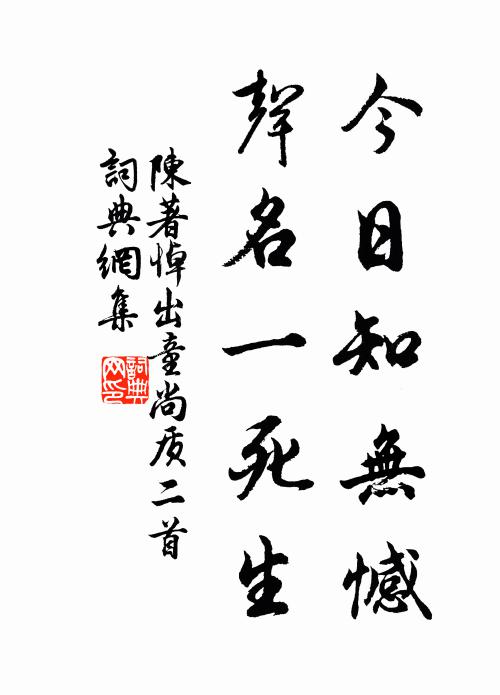 今日知無憾
聲名一死生
陳著悼出童尚质二首
詞典網集
詞典
网印